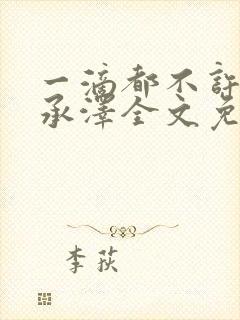 一滴都不许
承泽全文免
李荻